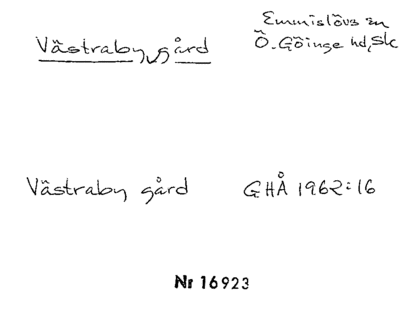 Västraby gård
Emmislövs sn
Ö. Göinge hd, Sk
Västraby gård GHÅ 1962:16
Nr 16923